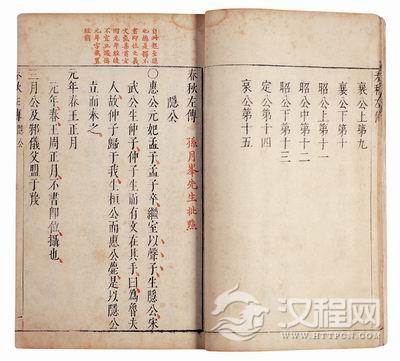 襄公上第九
襄公下第十
昭公上第十一
昭公中第十二
昭公下第十三
定公第十四
哀公第十五
春秋左傳 孫月峯先生批點
隱公
○惠公元妃孟子孟子卒繼室以聲子生隱公宋
武公生仲子仲子生而有文在其手曰爲魯夫
人故仲子歸于我生桓公而惠公薨是以隱公
立而奉之
元年春王正月
元年春王周正月不書卽位攝也
三月公及邾儀父盟于蔑
汉程网